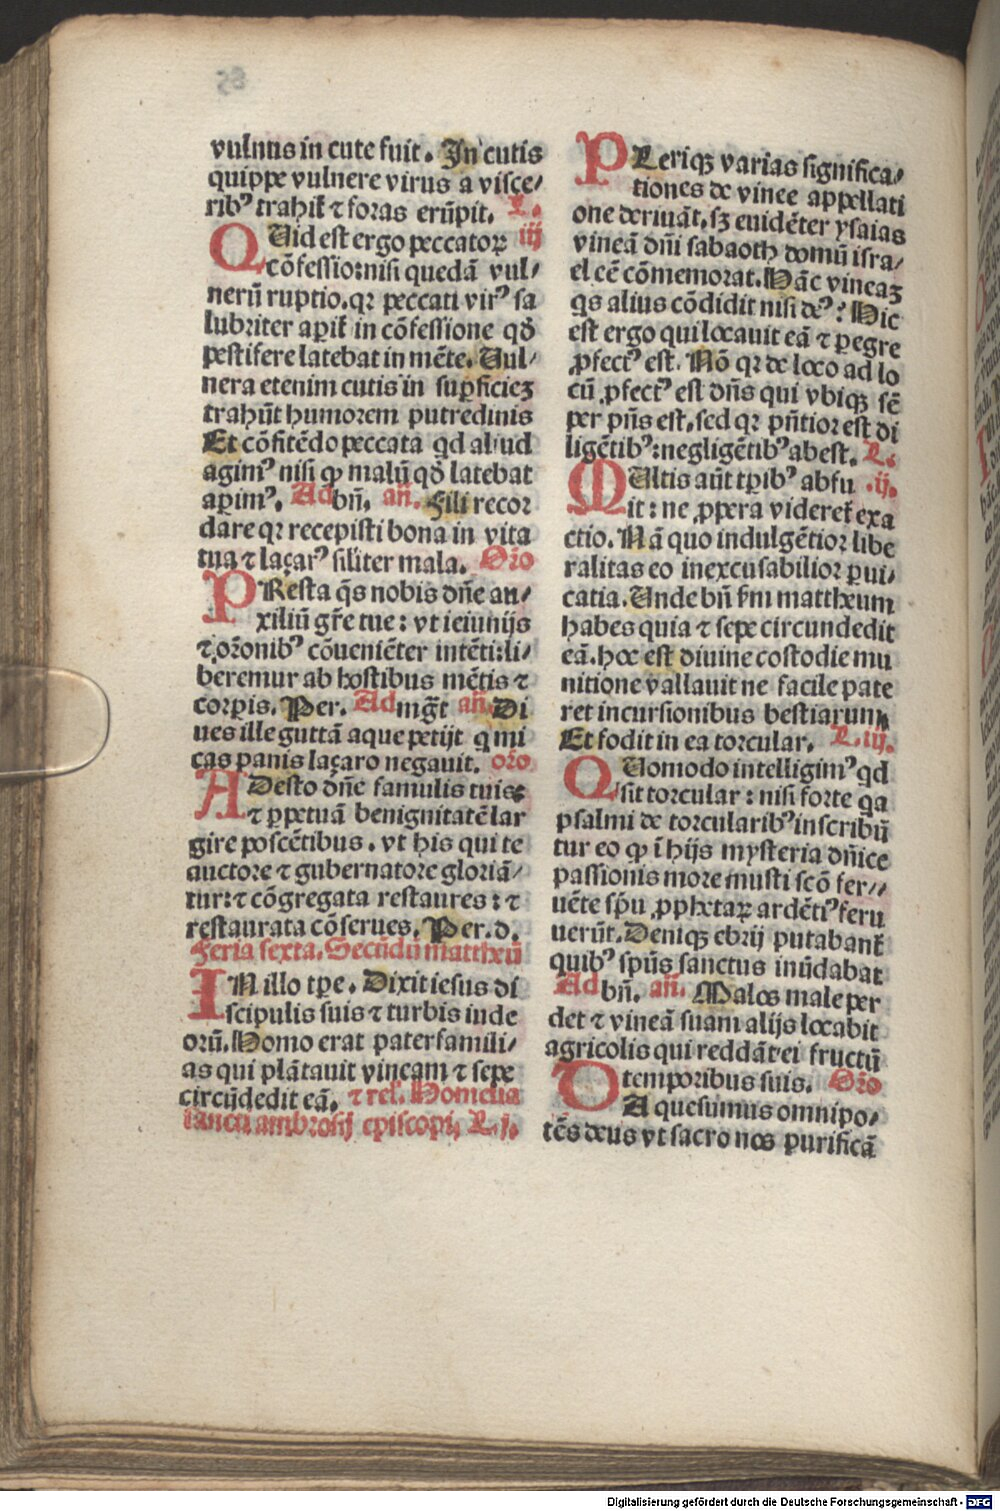 vulnus in cute fuit. In cutis
quippe vulnere virus a visce/
ribꝰ trahit̃ ⁊ foras erũpit. L.
QUid est ergo peccatoꝝ iij
cõfessio: nisi quedã vul/
nerũ ruptio. qꝛ peccati virꝰ sa
lubriter aꝑit̃ in cõfessione qđ
pestifere latebat in mẽte. Vul/
nera etenim cutis in suꝑficieꝫ
trahũt humorem putredinis
Et cõfitẽdo peccata qd aliud
agimꝰ nisi ꝙ malũ qđ latebat
aꝑimꝰ. Ad bñ. añ. Fili recor
dare qꝛ recepisti bona in vita
tua ⁊ laçarꝰ siliter mala. Oro
PResta q̃s nobis dñe au/
xiliũ gr̃e tue: vt ieiunijs
⁊ or̃onibꝰ cõueniẽter intẽti: li/
beremur ab hostibus mẽtis ⁊
corꝑis. Per. Ad mg̃t añ. Di
ues ille guttã aque petijt q mi
cas panis laçaro negauit. or̃o
ADesto dñe famulis tuis:
⁊ ꝑpetuã benignitatẽ lar
gire poscẽtibus. vt his qui te
auctore ⁊ gubernatore gloriã/
tur: ⁊ cõgregata restaures: ⁊
restaurata cõserues. Per. d.
Feria sexta. Secũdũ mattheũ
IN illo tꝑe. Dixit iesus di
scipulis suis ⁊ turbis iude
orũ. Homo erat paterfamili/
as qui plãtauit vineam ⁊ sepe
circũdedit eã. ⁊ rel. Homelia
sancti ambrosij episcopi. L. j.
PLeriqꝫ varias significa/
tiones de vinee appellati
one deriuãt. sꝫ euidẽter ysaias
vineã dñi sabaoth domũ isra/
el eẽ cõmemorat. Hãc vineaꝫ
q̃s alius cõdidit nisi deꝰ? Hic
est ergo qui locauit eã ⁊ ꝑegre
ꝓfectꝰ est. Nõ qꝛ de loco ad lo
cũ ꝓfectꝰ est dñs qui vbiqꝫ sẽ
per pñs est. sed qꝛ pñtior est di
ligẽtibꝰ: negligẽtibꝰ abest. L.
MUltis aũt tꝑibꝰ abfu .ij.
it: ne ꝓpera videret̃ exa
ctio. Nã quo indulgẽtior libe
ralitas eo inexcusabilior ꝑui/
catia. Unde bñ ẜm mattheum
habes quia ⁊ sepe circundedit
eã. hoc est diuine costodie mu
nitione vallauit ne facile pate
ret incursionibus bestiarum.
Et fodit in ea torcular. L. iij.
QUomodo intelligimꝰ qd
sit torcular: nisi forte qa
psalmi de torcularibꝰ inscribũ
tur eo ꝙ ĩ hijs mysteria dñice
passionis more musti scõ fer//
uẽte sp̃u ꝓphetaꝝ ardẽtiꝰ feru
uerũt. Deniqꝫ ebrij putabant̃
quibꝰ sp̃us sanctus inũdabat
Ad bñ. añ. Malos male per
det ⁊ vineã suam alijs locabit
agricolis qui reddãt ei fructũ
temporibus suis. Oro
DA quesumus omnipo/
tẽs deus vt sacro nos purificã